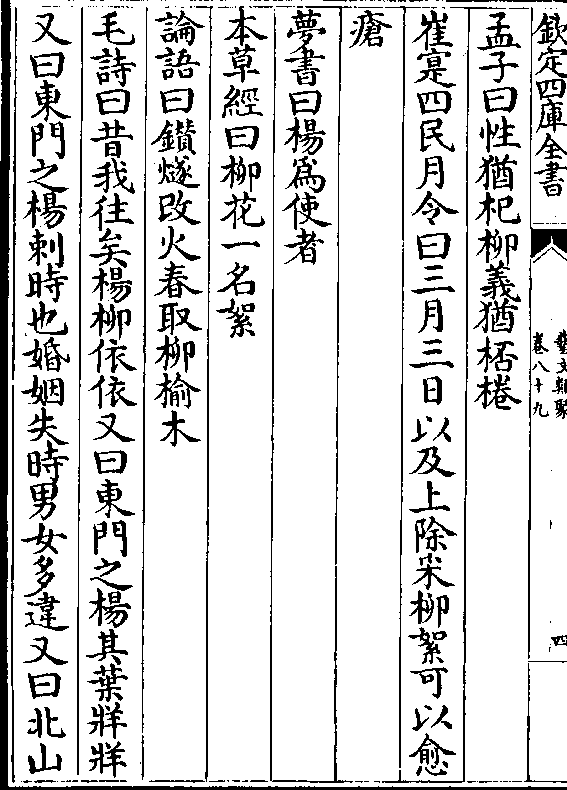 欽定四庫全書
藝文類聚
卷八十九
四
孟子曰性猶杞柳義猶桮棬
崔寔四民月令曰三月三日以及上除采柳絮可以愈
瘡
夢書曰楊為使者
本草經曰柳花一名絮
論語曰鑚燧改火春取柳榆木
毛詩曰昔我往矣楊柳依依又曰東門之楊其葉牂牂
又曰東門之楊刺時也婚姻失時男女多違又曰北山